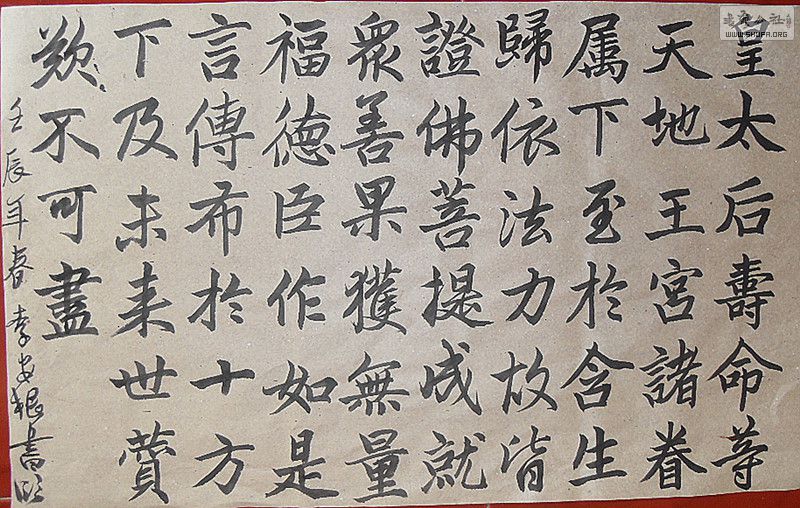 皇太后壽命等
天地王宮諸眷
属下至於含生
歸依法力故皆
證佛菩提成就
衆善果獲無量
福德臣作如是
言傳布於十方
下及未来世賛
歎不可盡
壬辰年春李安根書
WWW.SHUFA.ORG